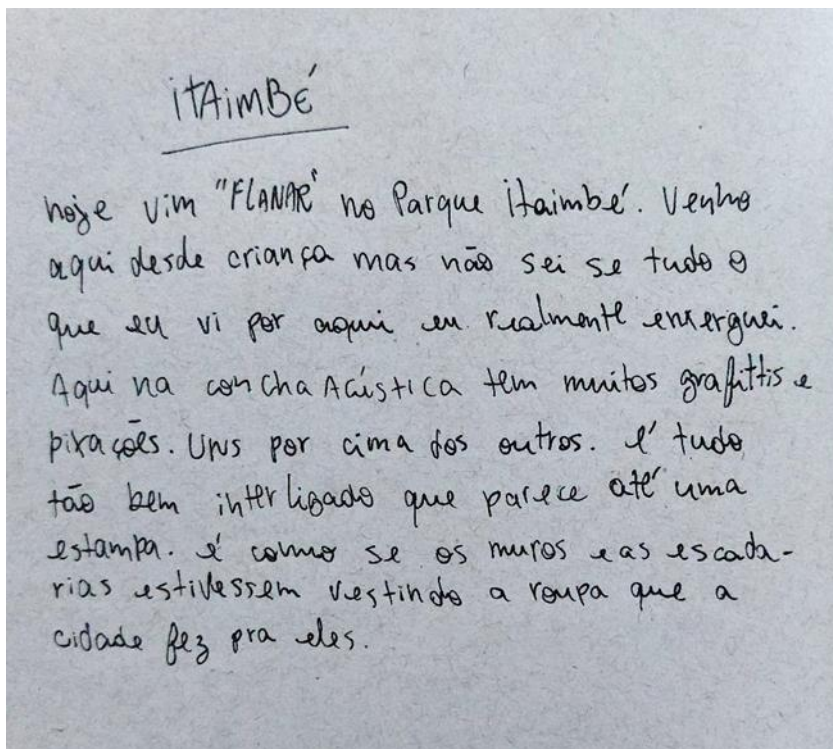 iTAimBÉ
hoje vim "FLANAR" no Parque itaimbé. Venho
aqui desde criança mas não sei se tudo o
que eu vi por aqui eu realmente enxerguei.
Aqui na concha Acústica tem muitos grafittis e
pixações. Uns por cima dos outros. é tudo
tão bem interligado que parece até uma
estampa. é como se os muros e as escada-
rias estivessem vestindo a roupa que a
cidade fez pra eles.